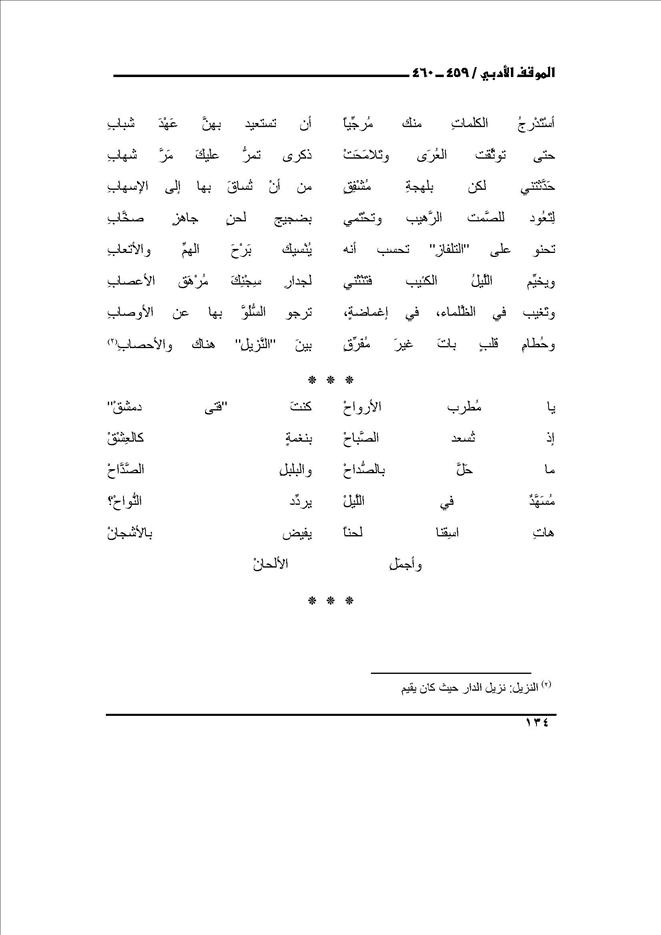 الموقف الأدبي / ٤٥٩ ــ ٤٦٠
أسْتَدْرجُ الكلماتِ منك مُرجِّياً أن تستعيد بهنَّ عَهْدَ شبابِ
حتى توثّقت العُرَى وتَلامَحَتْ ذكرى تمرُّ عليكَ مَرَّ شهابِ
حَدَّثتني لكن بلهجةِ مُشْفِقٍ من أنْ تُساقَ بها إلى الإسهابِ
لِتَعُود للصَّمت الرَّهيب وتحتْمي بضجيج لحنٍ جاهز صخَّابِ
تحنو على "التلفاز" تحسب أنه يُنْسيك بَرْحَ الهمِّ والأتعابِ
ويخيِّم اللّيلُ الكئيب فتَنْثني لجدار سِجْنِكَ مُرْهَق الأعصابِ
وتَغيب في الظّلماء، في إغماضةٍ، ترجو السُّلوَّ بها عن الأوصابِ
وحُطام قلبٍ باتَ غيرَ مُفرِّقٍ بينَ "النَّزيل" هناك والأحصابِ(٢)
* * *
يا مُطرب الأرواحْ كنتَ "فتى دمشقْ"
إذ تُسعد الصَّباحْ بنغمةٍ كالعِشْقْ
ما حَلَّ بالصُّداحْ والبلبل الصَّدَّاحْ
مُسَهَّدٌ في اللّيلْ يردِّد النُّواحْ؟
هاتِ اسِقنا لحناً يفيض بالأشجانْ
وأجمَل الألحانْ
* * *
(٢) النزيل: نزيل الدار حيث كان يقيم
١٣٤